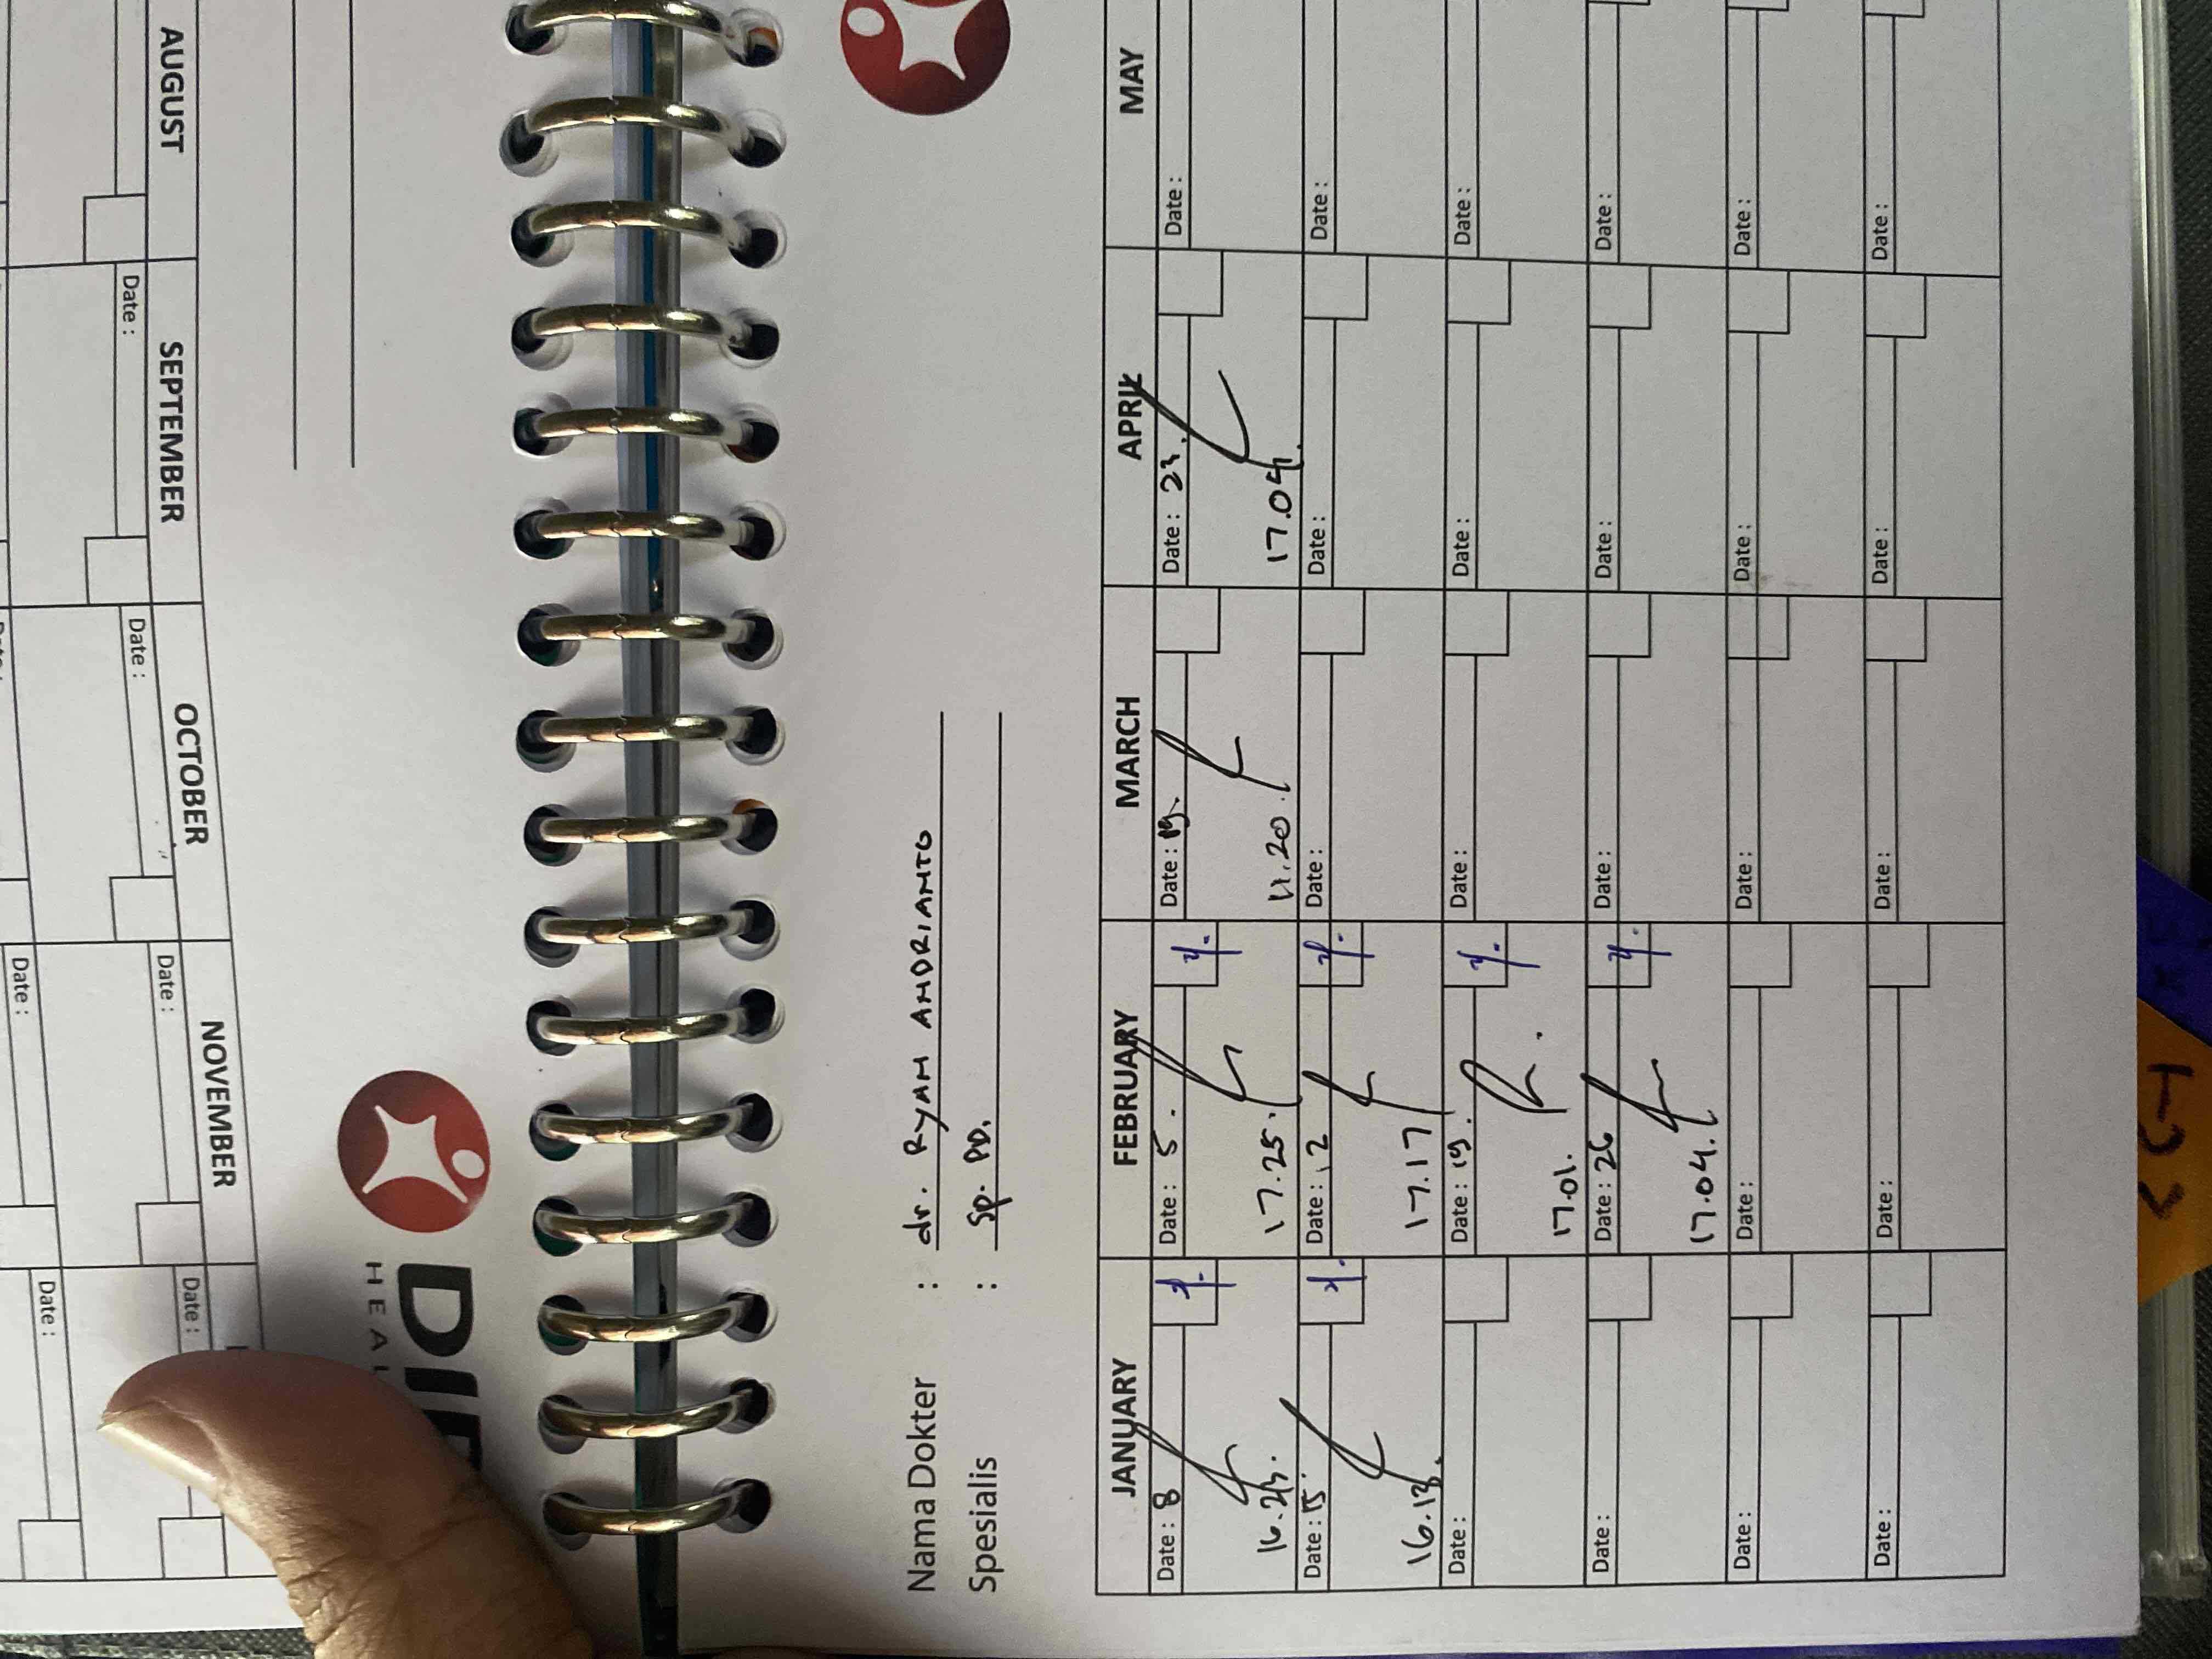 AUGUST SEPTEMBER OCTOBER NOVEMBER
Date : Date : Date : Date :
Date : Date :
HEAL
Nama Dokter : dr. RYAN ANDRIANTO
Spesialis : Sp. PD.
JANUARY FEBRUARY MARCH APRIL MAY
Date : 8 Date : 5 . Date : 19. Date : 23. Date :
17.25. 11.20. 17.09.
Date : 15. Date : 12 Date : Date : Date :
16.13. 17.17
Date : Date : 19. Date : Date : Date :
17.01.
Date : Date : 26 Date : Date : Date :
17.04.
Date : Date : Date : Date : Date :
Date : Date : Date : Date : Date :